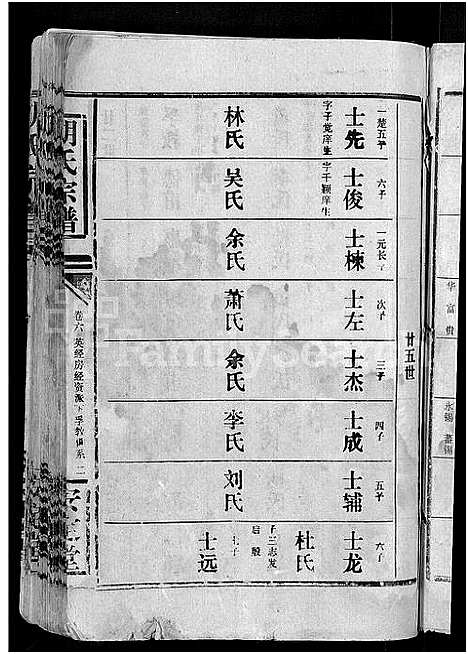 廿五世
一楚五子 士先 字子觉庠生 林氏
六子 士俊 字子颖庠生 吴氏
一元长子 士栋 余氏
次子 士左 萧氏
三子 士杰 余氏
四子 士成 李氏
五子 士辅 刘氏
六子 士龙 杜氏
子三志发
士远
胡氏宗谱
卷六英经房经资派下孚教
华富贵
永锡
FamilySearch